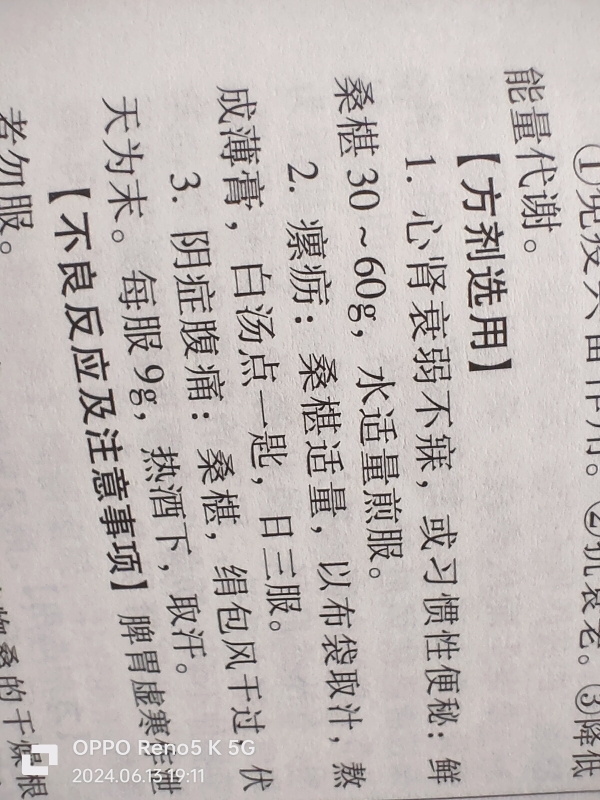 ①免疫
作用。②抗衰老。③降低
能量代谢。
【方剂选用】
1. 心肾衰弱不寐，或习惯性便秘：鲜
桑椹30~60g，水适量煎服。
2. 瘰疬：桑椹适量，以布袋取汁，熬
成薄膏，白汤点一匙，日三服。
3. 阴症腹痛：桑椹，绢包风干过 伏
天为末。每服9g，热酒下，取汗。
【不良反应及注意事项】脾胃虚寒作泄
者勿服。
桑的干燥根
OPPO Reno5 K 5G
2024.06.13 19:11